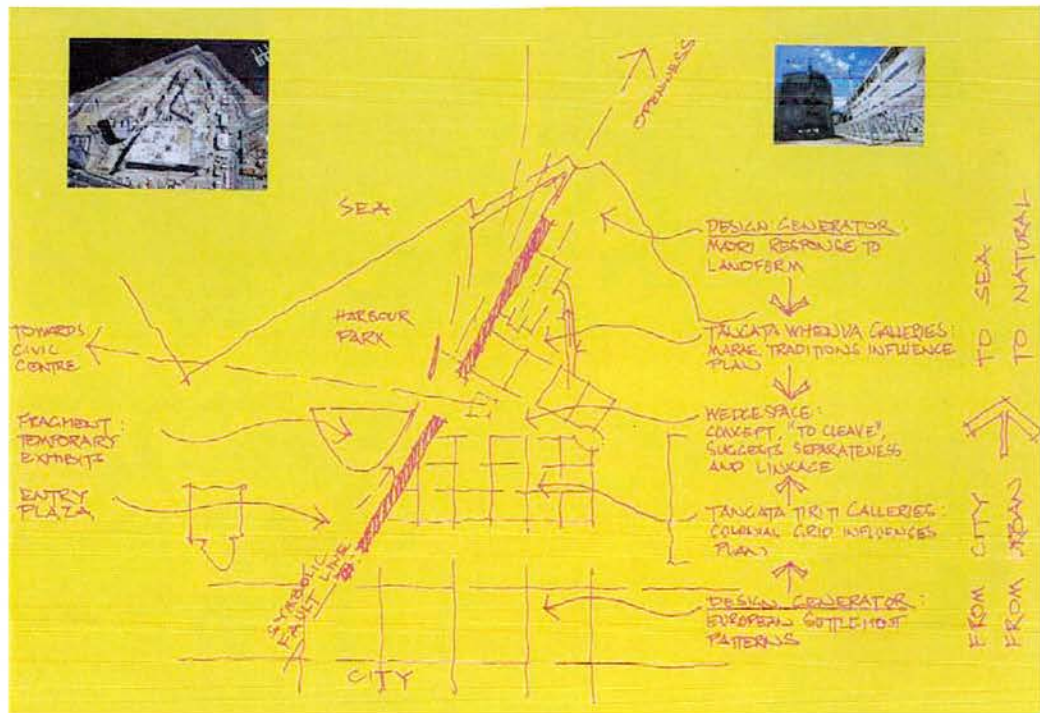 OPENNESS
SEA
HARBOUR
PARK
TOWARDS
CIVIC
CENTRE
FRAGMENT:
TEMPORARY
EXHIBITS
ENTRY
PLAZA
SYMBOLIC
FAULT LINE
CITY
DESIGN GENERATOR:
MAORI RESPONSE TO
LANDFORM
TANGATA WHENUA GALLERIES:
MARAE TRADITIONS INFLUENCE
PLAN
WEDGESPACE:
CONCEPT, "TO CLEAVE",
SUGGESTS SEPARATENESS
AND LINKAGE
TANGATA TIRITI GALLERIES:
COLONIAL GRID INFLUENCES
PLAN
DESIGN GENERATOR:
EUROPEAN SETTLEMENT
PATTERNS
FROM CITY TO SEA
FROM URBAN TO NATURAL